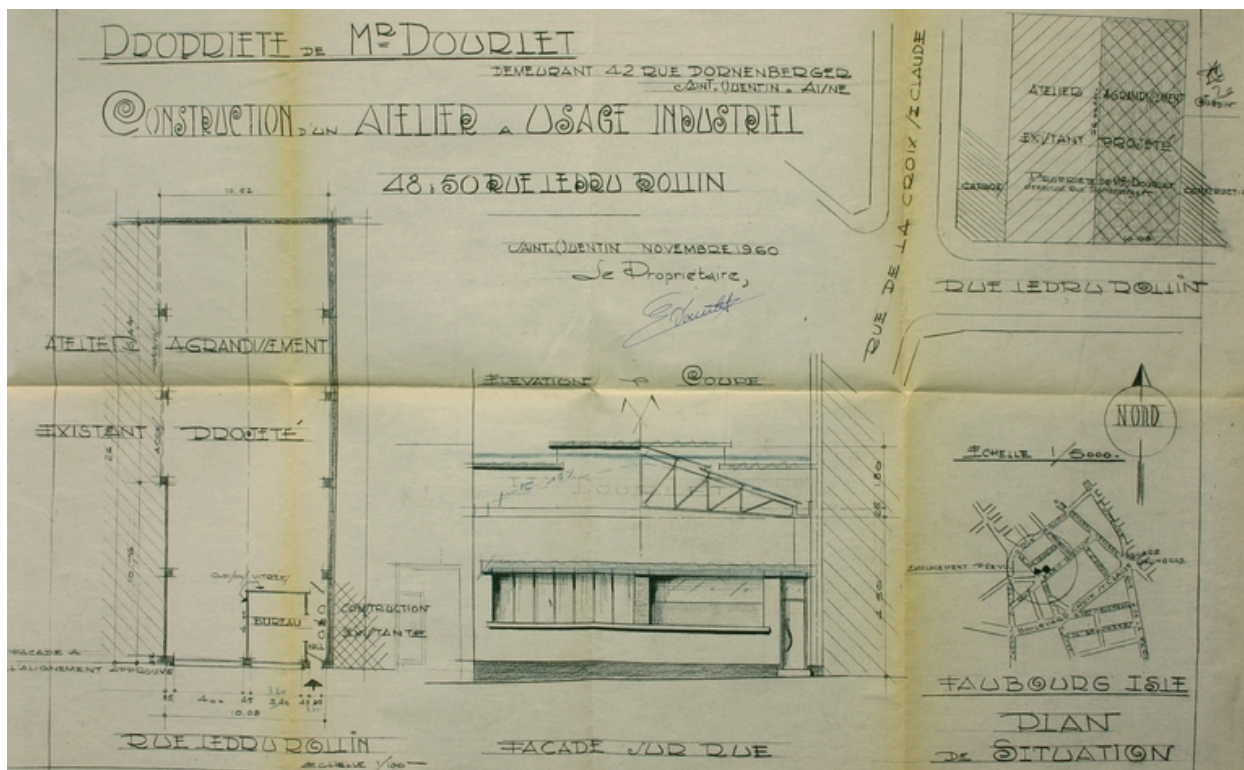 PROPRIETE DE MR DOURLET
DEMEURANT 42 RUE DORNENBERGER
SAINT.QUENTIN. AISNE
CONSTRUCTION D'UN ATELIER A USAGE INDUSTRIEL
48,50 RUE LEDRU ROLLIN
SAINT.QUENTIN NOVEMBRE 1960
Le Propriétaire,
10.52
ATELIER
AGRANDISSEMENT
EXISTANT
PROJETÉ
26
10.75
CLOISONS VITRÉES
BUREAU
HALL
CONSTRUCTION
EXISTANTE
FACADE A
L'ALIGNEMENT APPROUVÉ
4.00 45 3.40
10.08
RUE LEDRU ROLLIN
ECHELLE 1/100
ELEVATION COUPE
1.80
25
4.50
FACADE SUR RUE
RUE DE LA CROIX St CLAUDE
ATELIER
AGRANDISSEMENT
EXISTANT
PROJETÉ
GARAGE
PROPRIETE DE Mr DOURLET
CONSTRUCTI
10.08
RUE LEDRU ROLLIN
NORD
ECHELLE 1/5000.
EMPLACEMENT PREVU
SQUARE
FAUBOURG ISLE
PLAN
DE SITUATION